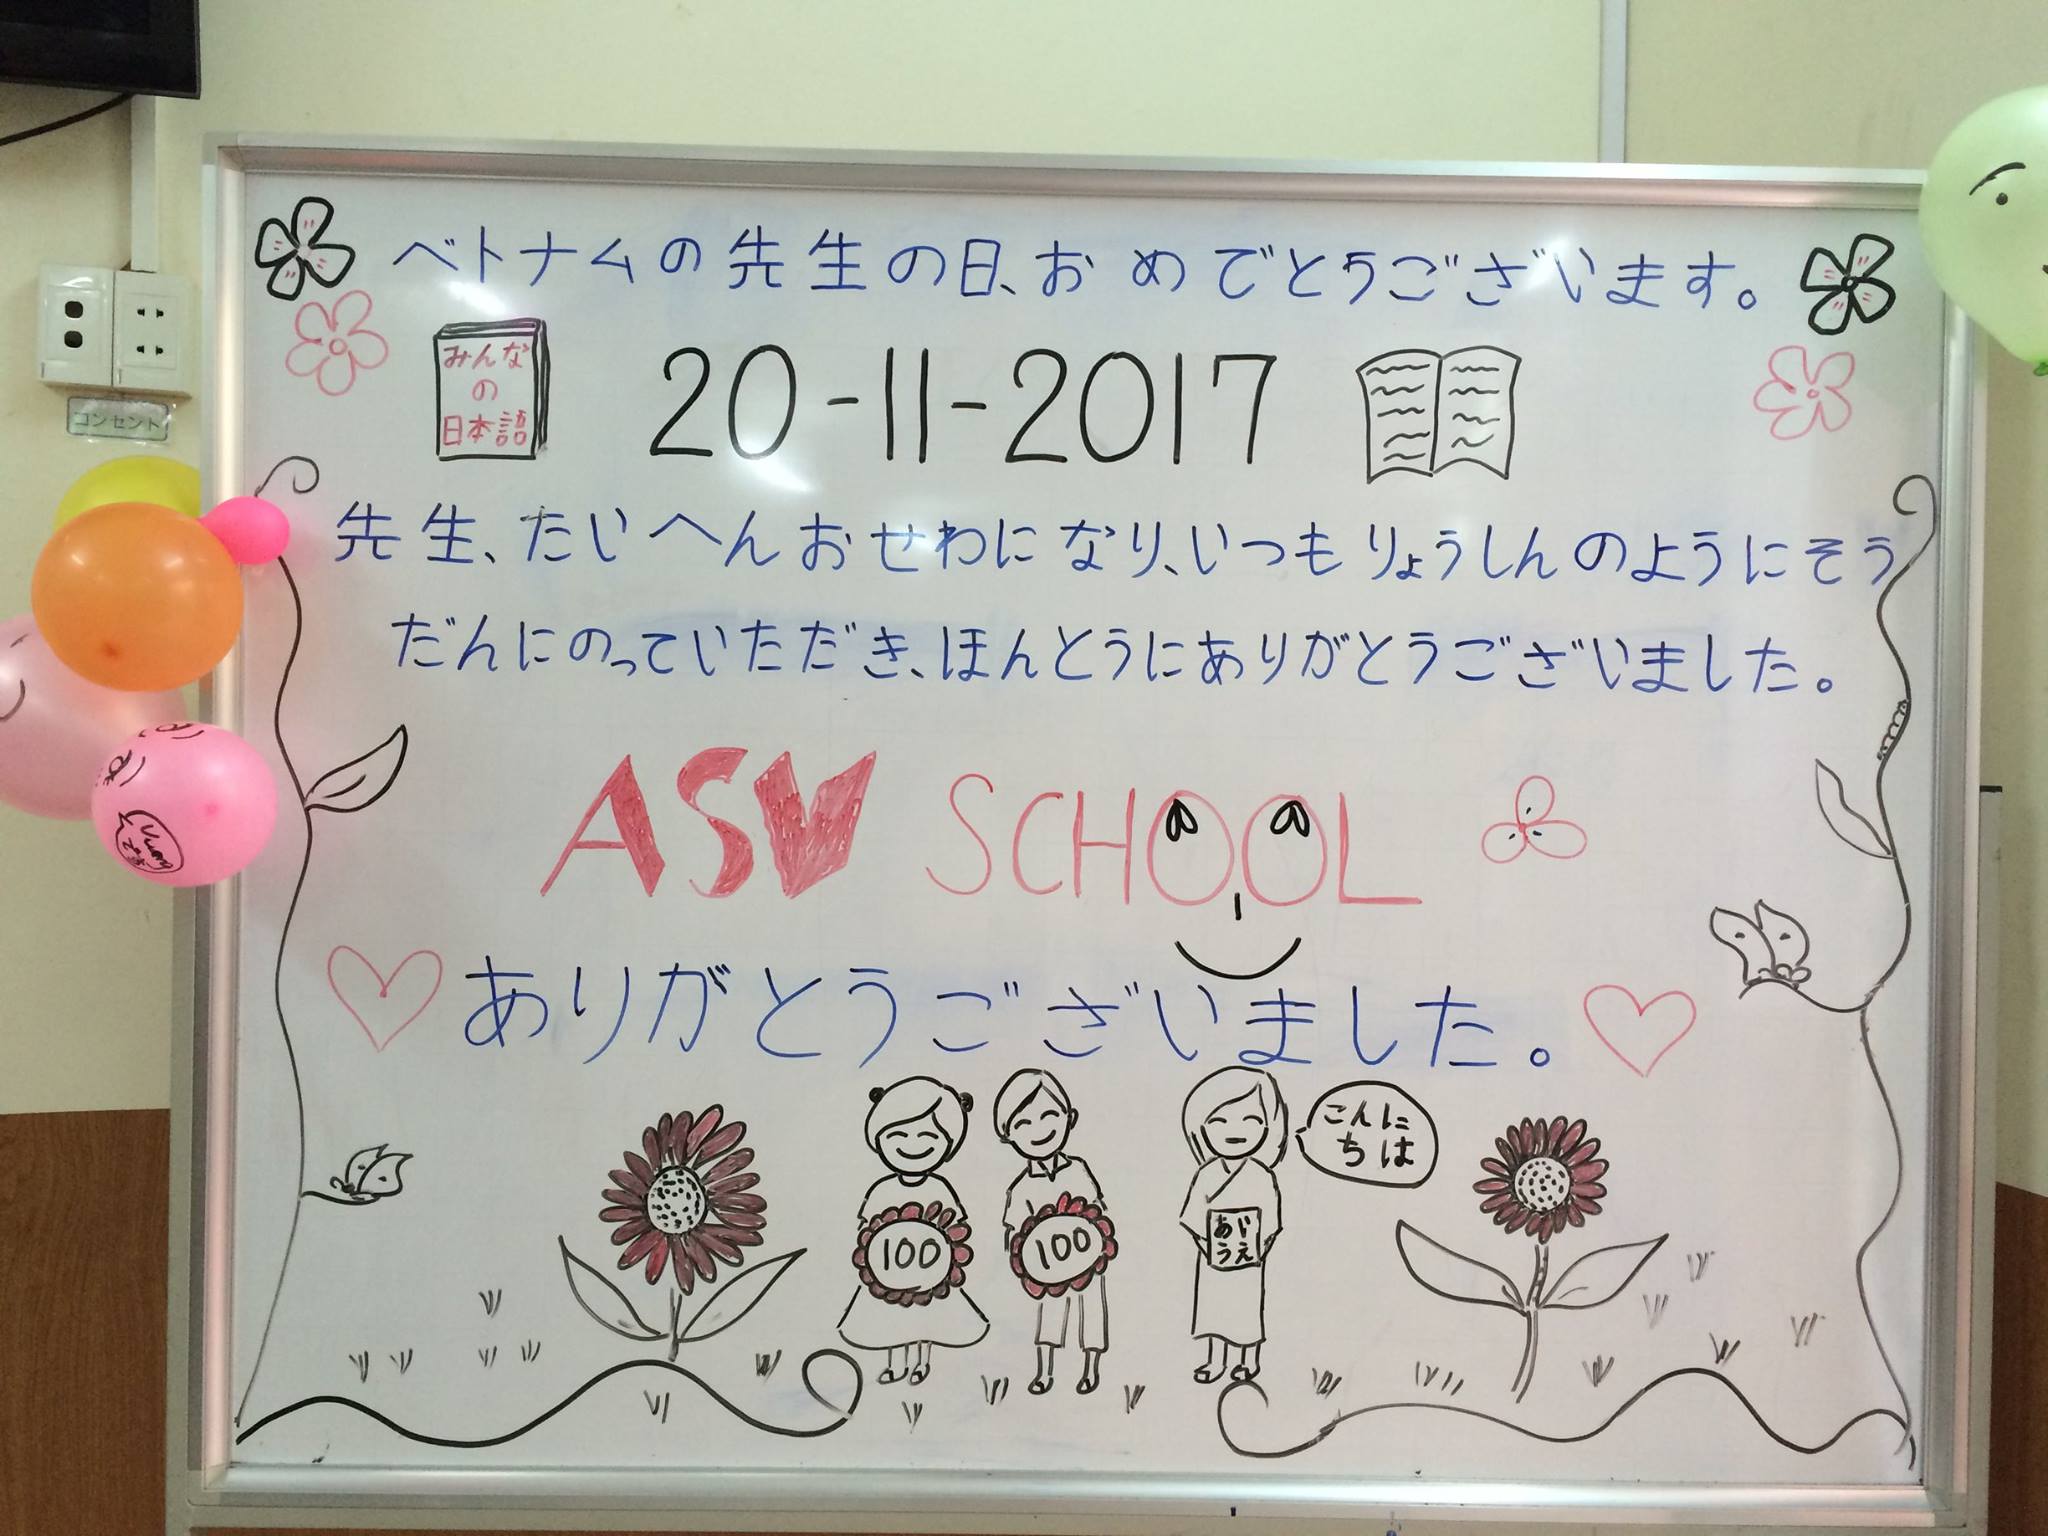 ベトナムの先生の日、おめでとうございます。
みんな
の
日本語
20-11-2017
コンセント
先生、たいへんおせわになり、いつもりょうしんのようにそう
だんにのっていただき、ほんとうにありがとうございました。
ASV SCHOOL
ありがとうございました。
こんに
ちは
あい
うえ
100
100